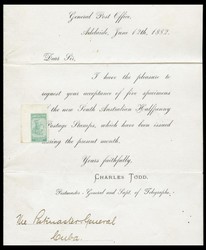 General Post Office,
Adelaide, June 13th, 1882.
Dear Sir,
I have the pleasure to
request your acceptance of five specimens
of the new South Australian Halfpenny
Postage Stamps, which have been issued
during the present month.
Yours faithfully,
CHARLES TODD,
Postmaster-General and Supt. of Telegraphs.
The Postmaster General
Cuba.